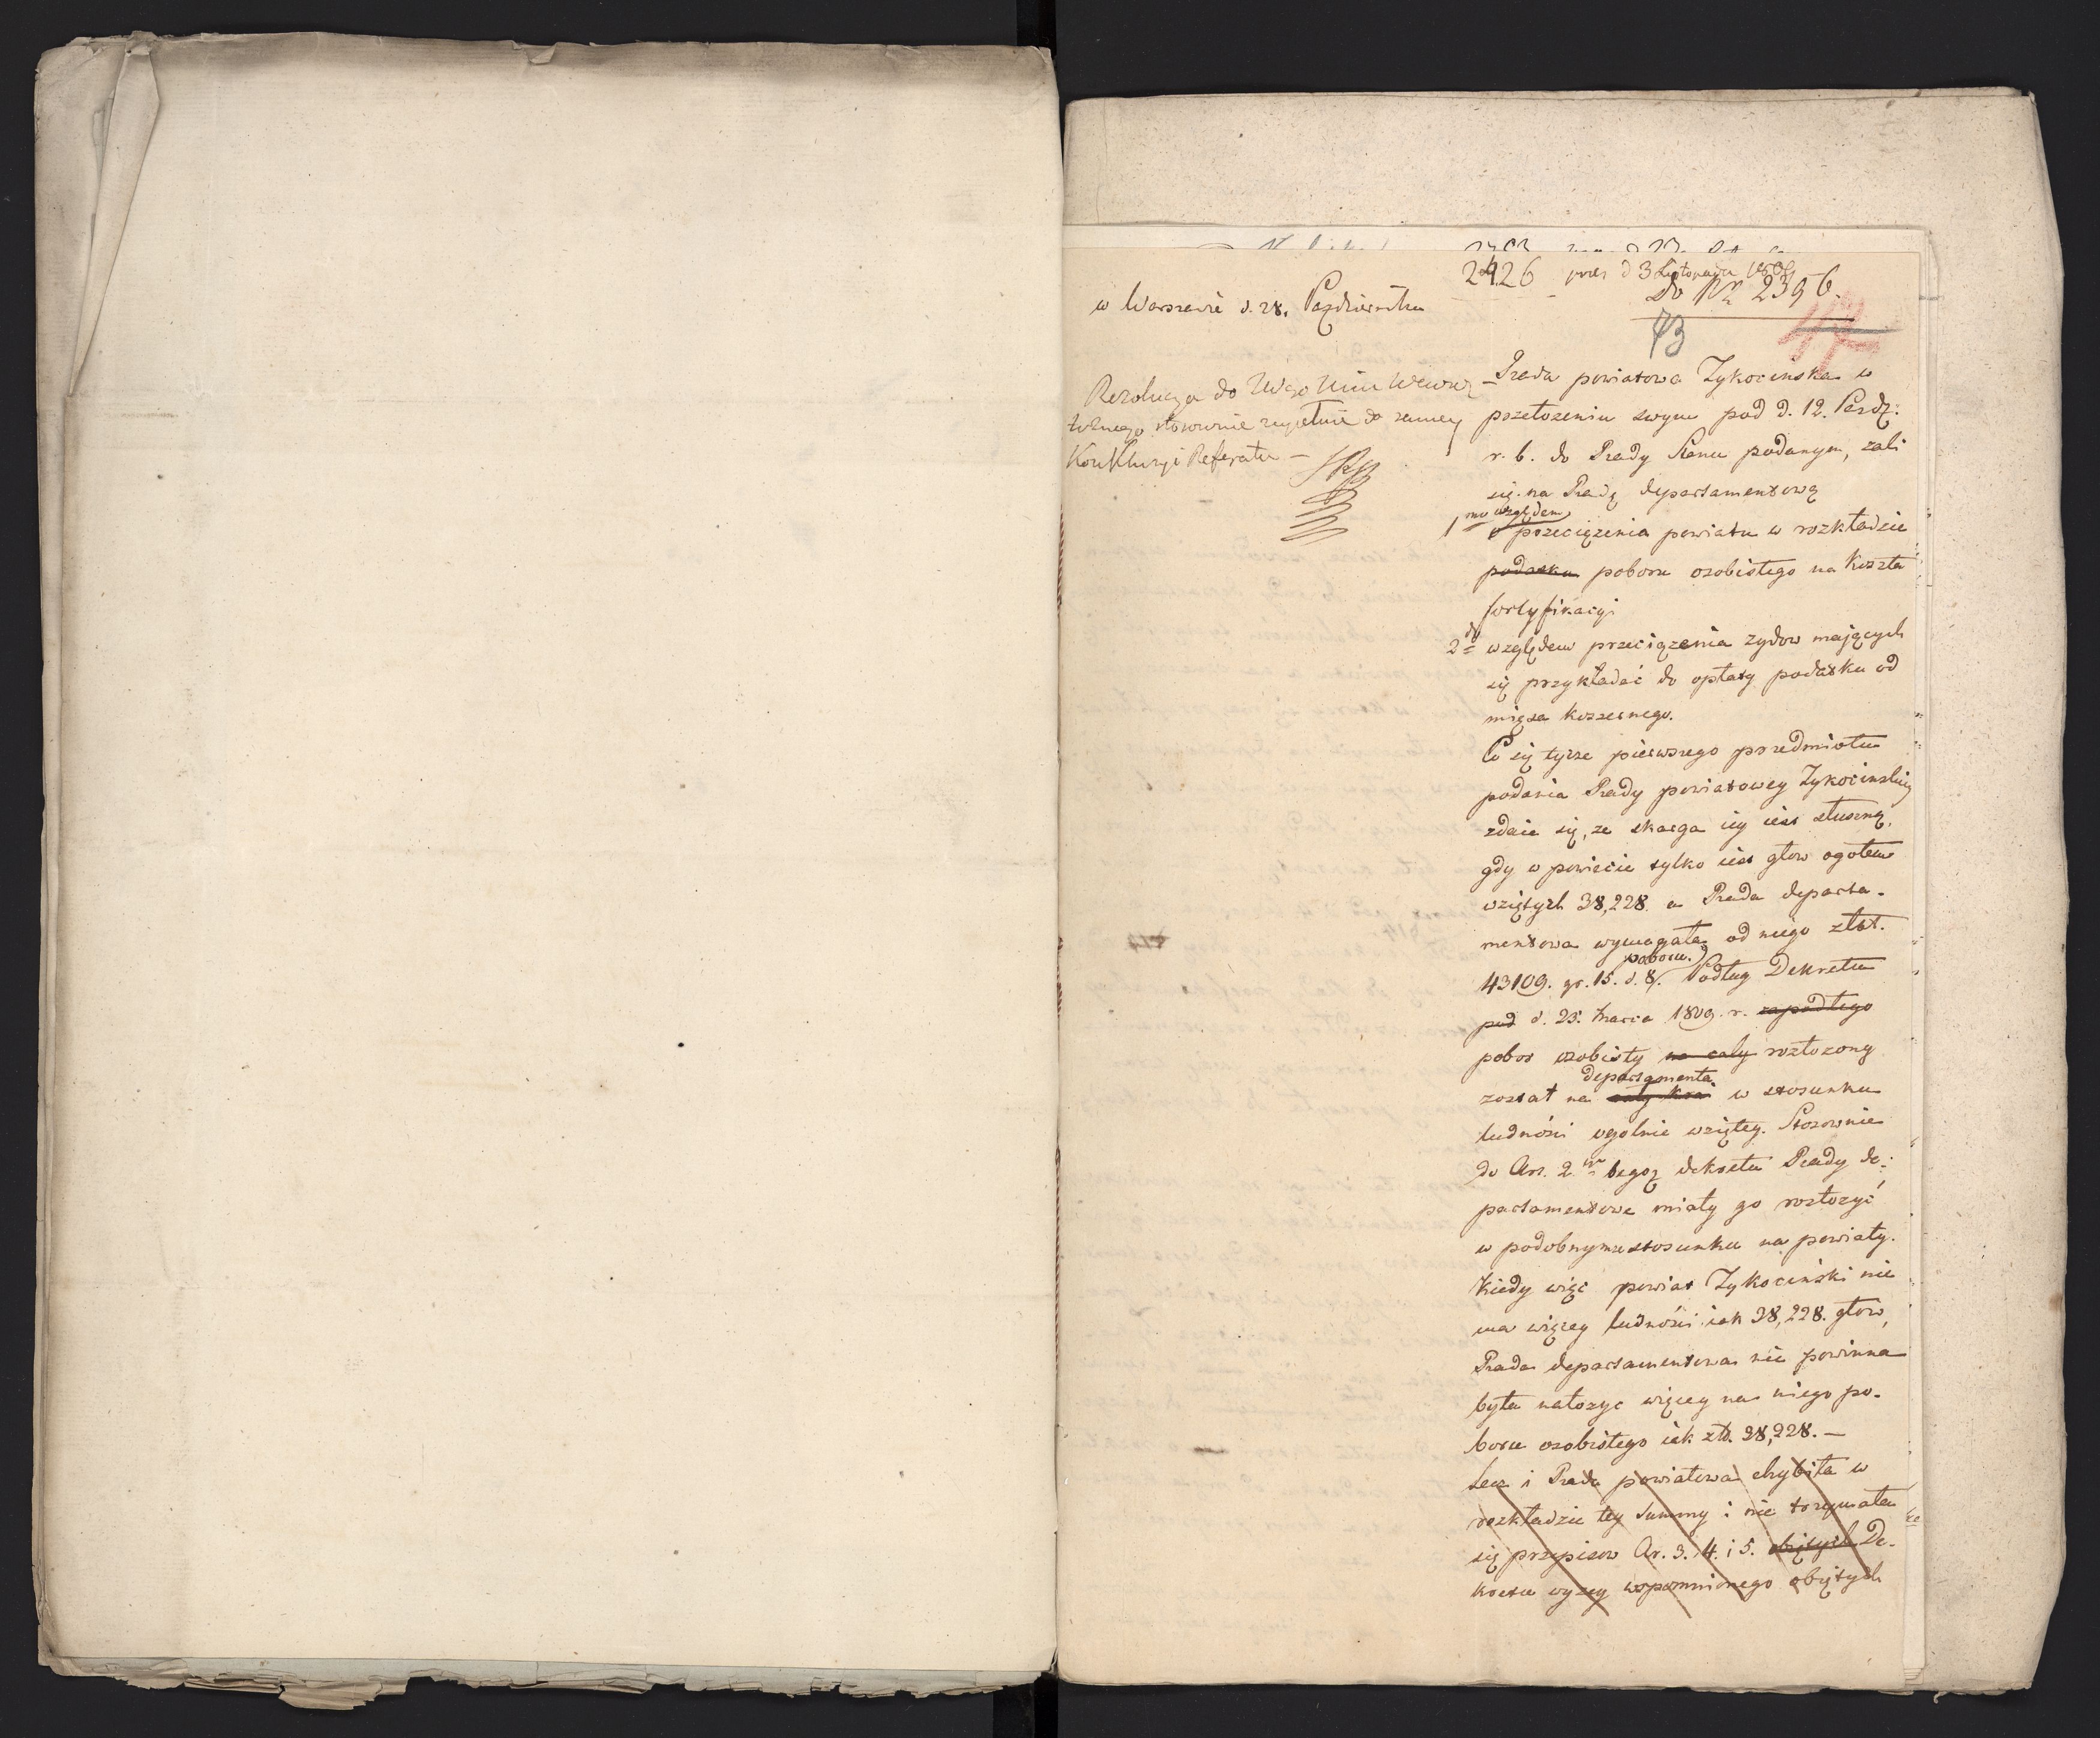 2426 pres d 3 Listopada 1809
do Nr 2396.
73
w Warszawie d. 28. Października
Rezolucya do Mgo Min Wewnę
trznego stosownie zupełnie do samey
Konkluzyi Referatu –
Rada powiatowa Tykocinska w
przełozeniu swym pod d. 12. Paźdz:
r. b. do Rady Stanu podanym, zali
się na Radę departamentową
1mo względem
przeciązenia powiatu w rozkładzie
podatku poboru osobistego na koszta
fortyfikacyi
2do względem przeciązenia zydow mających
się przykładać do opłaty podatku od
mięsa koszernego.
Co się tycze pierwszego przedmiotu
podania Rady powiatowey Tykocinskiey
zdaie się, ze skarga iey iest słuszną,
gdy w powiecie tylko iest głow ogołem
wziętych 38,228 a Rada departa-
mentowa wymagała od niego złot.
poboru.
43109. gr. 15. d. 8. Podług Dekretu
pod d. 25. Marca 1809. r. zapadłego
pobor osobisty na cały rozłozony
departamenta
został na cały kray w stosunku
ludności ogolnie wziętey. Stosownie
do Art. 2go tegoz dekretu Rady de-
partamentowe miały go rozłozyć
w podobnymze stosunku na powiaty.
Kiedy więc powiat Tykociński nie
ma więcey ludności iak 38,228. głow,
Rada departamentowa nie powinna
była nałozyc więcey na niego po-
boru osobistego iak zło. 38,228. —
Lecz i Rada powiatowa chybiła w
rozkładzie tey summy i nie trzymała
się przepisow Ar. 3. 4. i 5. obiętych De-
kretu wyzey wspomnionego obiętych